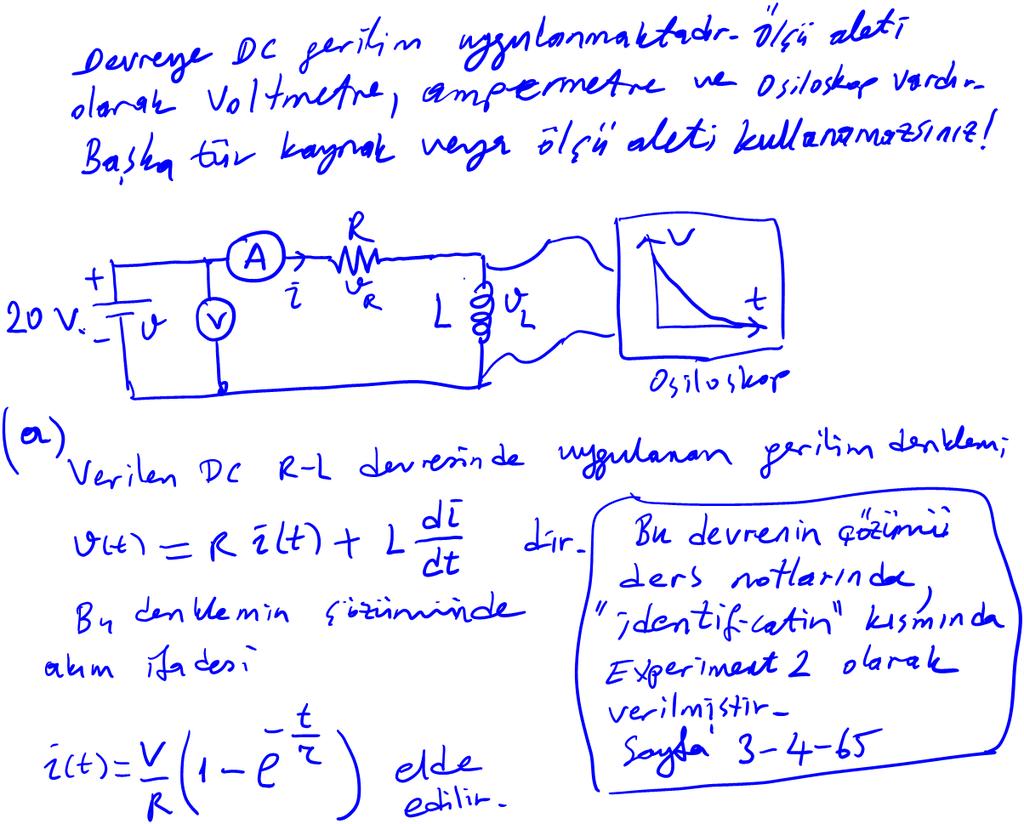 Devreye DC gerilim uygulanmaktadır. Ölçü aleti
olarak Voltmetre, ampermetre ve Osiloskop vardır.
Başka tür kaynak veya ölçü aleti kullanamazsınız!
A
R
V
+
i
v_R
t
20 V.
v
V
L
v_L
-
Osiloskop
(a)
Verilen DC R-L devresinde uygulanan gerilim denklemi;
v(t) = R i(t) + L di/dt dir.
Bu denklemin çözümünde
akım ifadesi
i(t) = V/R (1 - e^(-t/τ)) elde
edilir.
Bu devrenin çözümü
ders notlarında,
"identif-catin" kısmında
Experiment 2 olarak
verilmiştir.
Sayfa 3-4-65